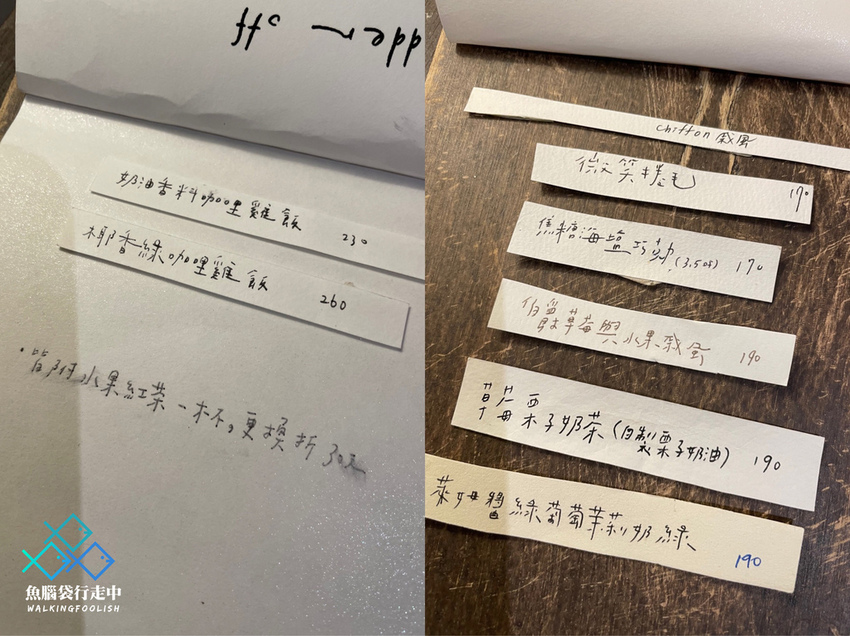 dder off
奶油香料咖哩雞飯 230
椰香綠咖哩雞飯 260
·皆附水果紅茶一杯。更換折30元
魚腦袋行走中
WALKINGFOOLISH
chiffon 戚風
微笑捲毛 170
焦糖海鹽巧勃.(3.5吋) 170
伯爵草莓與水果戚風 190
草莓西 栗子奶茶(自製栗子奶油) 190
萊姆醬綠葡萄茉莉奶綠 190